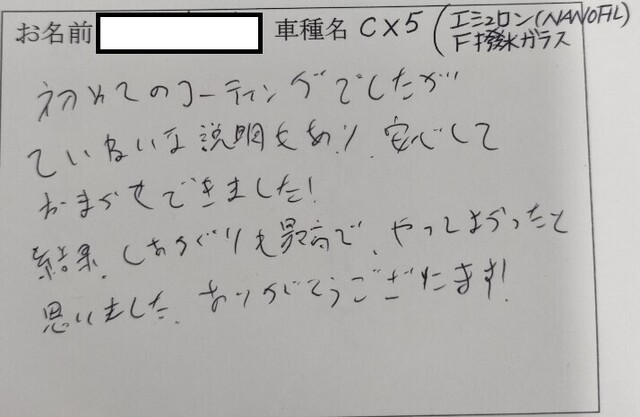 お名前 車種名 CX5 (エシュロン(NANOFIL)
F撥水ガラス
初めてのコーティングでしたが
ていねいな説明もあり、安心して
おまかせできました!
結果、しあがりも最高で、やってよかったと
思いました。ありがとうございます!